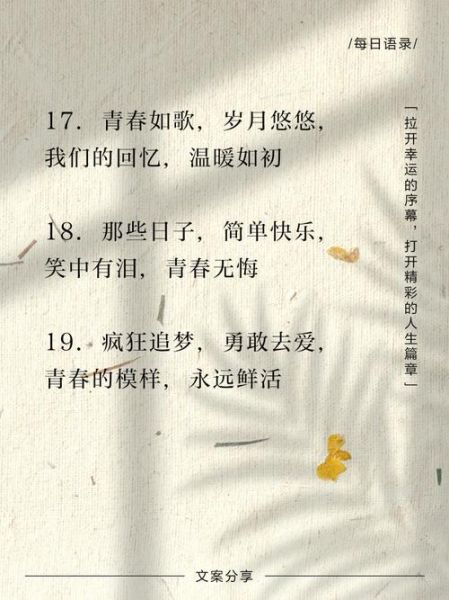 /每日语录/
17. 青春如歌，岁月悠悠，
我们的回忆，温暖如初
18. 那些日子，简单快乐，
笑中有泪，青春无悔
19. 疯狂追梦，勇敢去爱，
青春的模样，永远鲜活
「拉开幸运的序幕，打开精彩的人生篇章」
文案分享